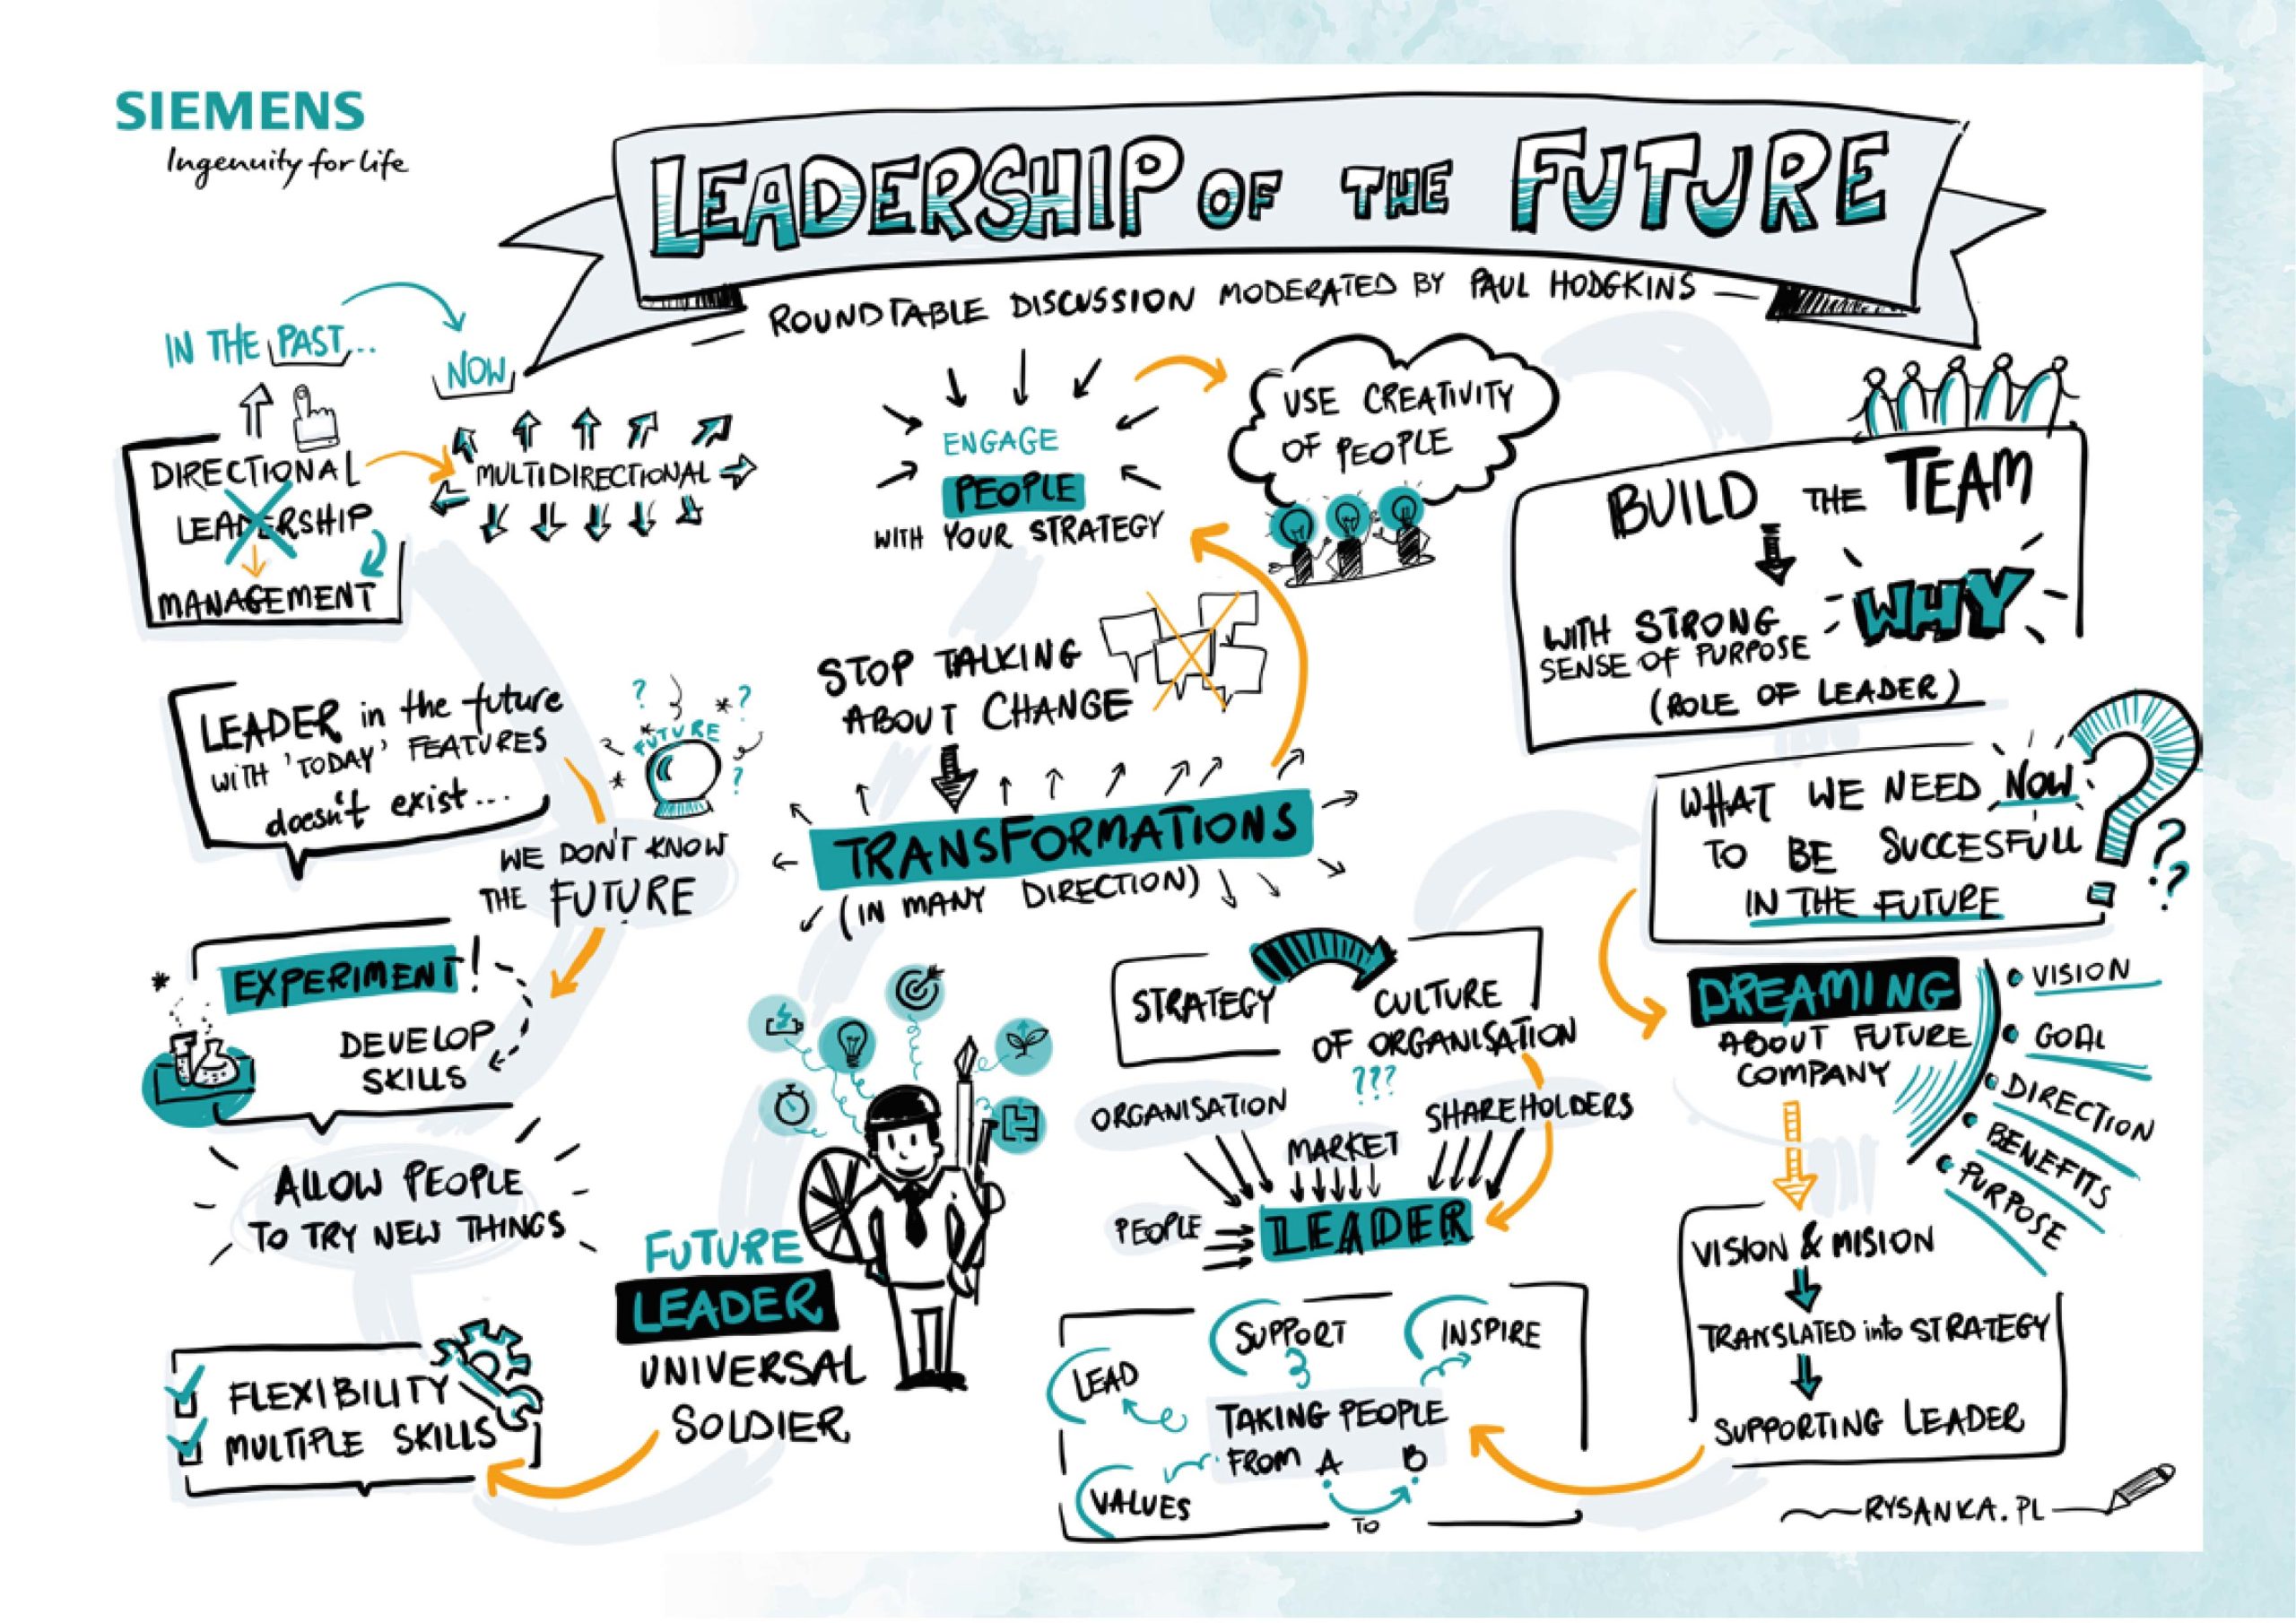 SIEMENS
Ingenuity for life
LEADERSHIP OF THE FUTURE
ROUNDTABLE DISCUSSION MODERATED BY PAUL HODGKINS
IN THE PAST...
NOW
DIRECTIONAL
LEADERSHIP
MANAGEMENT
MULTIDIRECTIONAL
ENGAGE
PEOPLE
WITH YOUR STRATEGY
USE CREATIVITY
OF PEOPLE
BUILD THE TEAM
WITH STRONG
SENSE OF PURPOSE
WHY
(ROLE OF LEADER)
LEADER in the future
WITH 'TODAY' FEATURES
doesn't exist...
? ?
FUTURE
?
WE DON'T KNOW
THE FUTURE
STOP TALKING
ABOUT CHANGE
TRANSFORMATIONS
(IN MANY DIRECTION)
WHAT WE NEED NOW
TO BE SUCCESFULL
IN THE FUTURE
? ? ?
EXPERIMENT!
DEVELOP
SKILLS
ALLOW PEOPLE
TO TRY NEW THINGS
FLEXIBILITY
MULTIPLE SKILLS
FUTURE
LEADER
UNIVERSAL
SOLDIER
STRATEGY
CULTURE
OF ORGANISATION
???
ORGANISATION
MARKET
SHAREHOLDERS
PEOPLE
LEADER
SUPPORT
INSPIRE
LEAD
TAKING PEOPLE
FROM A B
TO
VALUES
DREAMING
ABOUT FUTURE
COMPANY
• VISION
• GOAL
• DIRECTION
• BENEFITS
• PURPOSE
VISION & MISION
TRANSLATED into STRATEGY
SUPPORTING LEADER
RYSANKA.PL